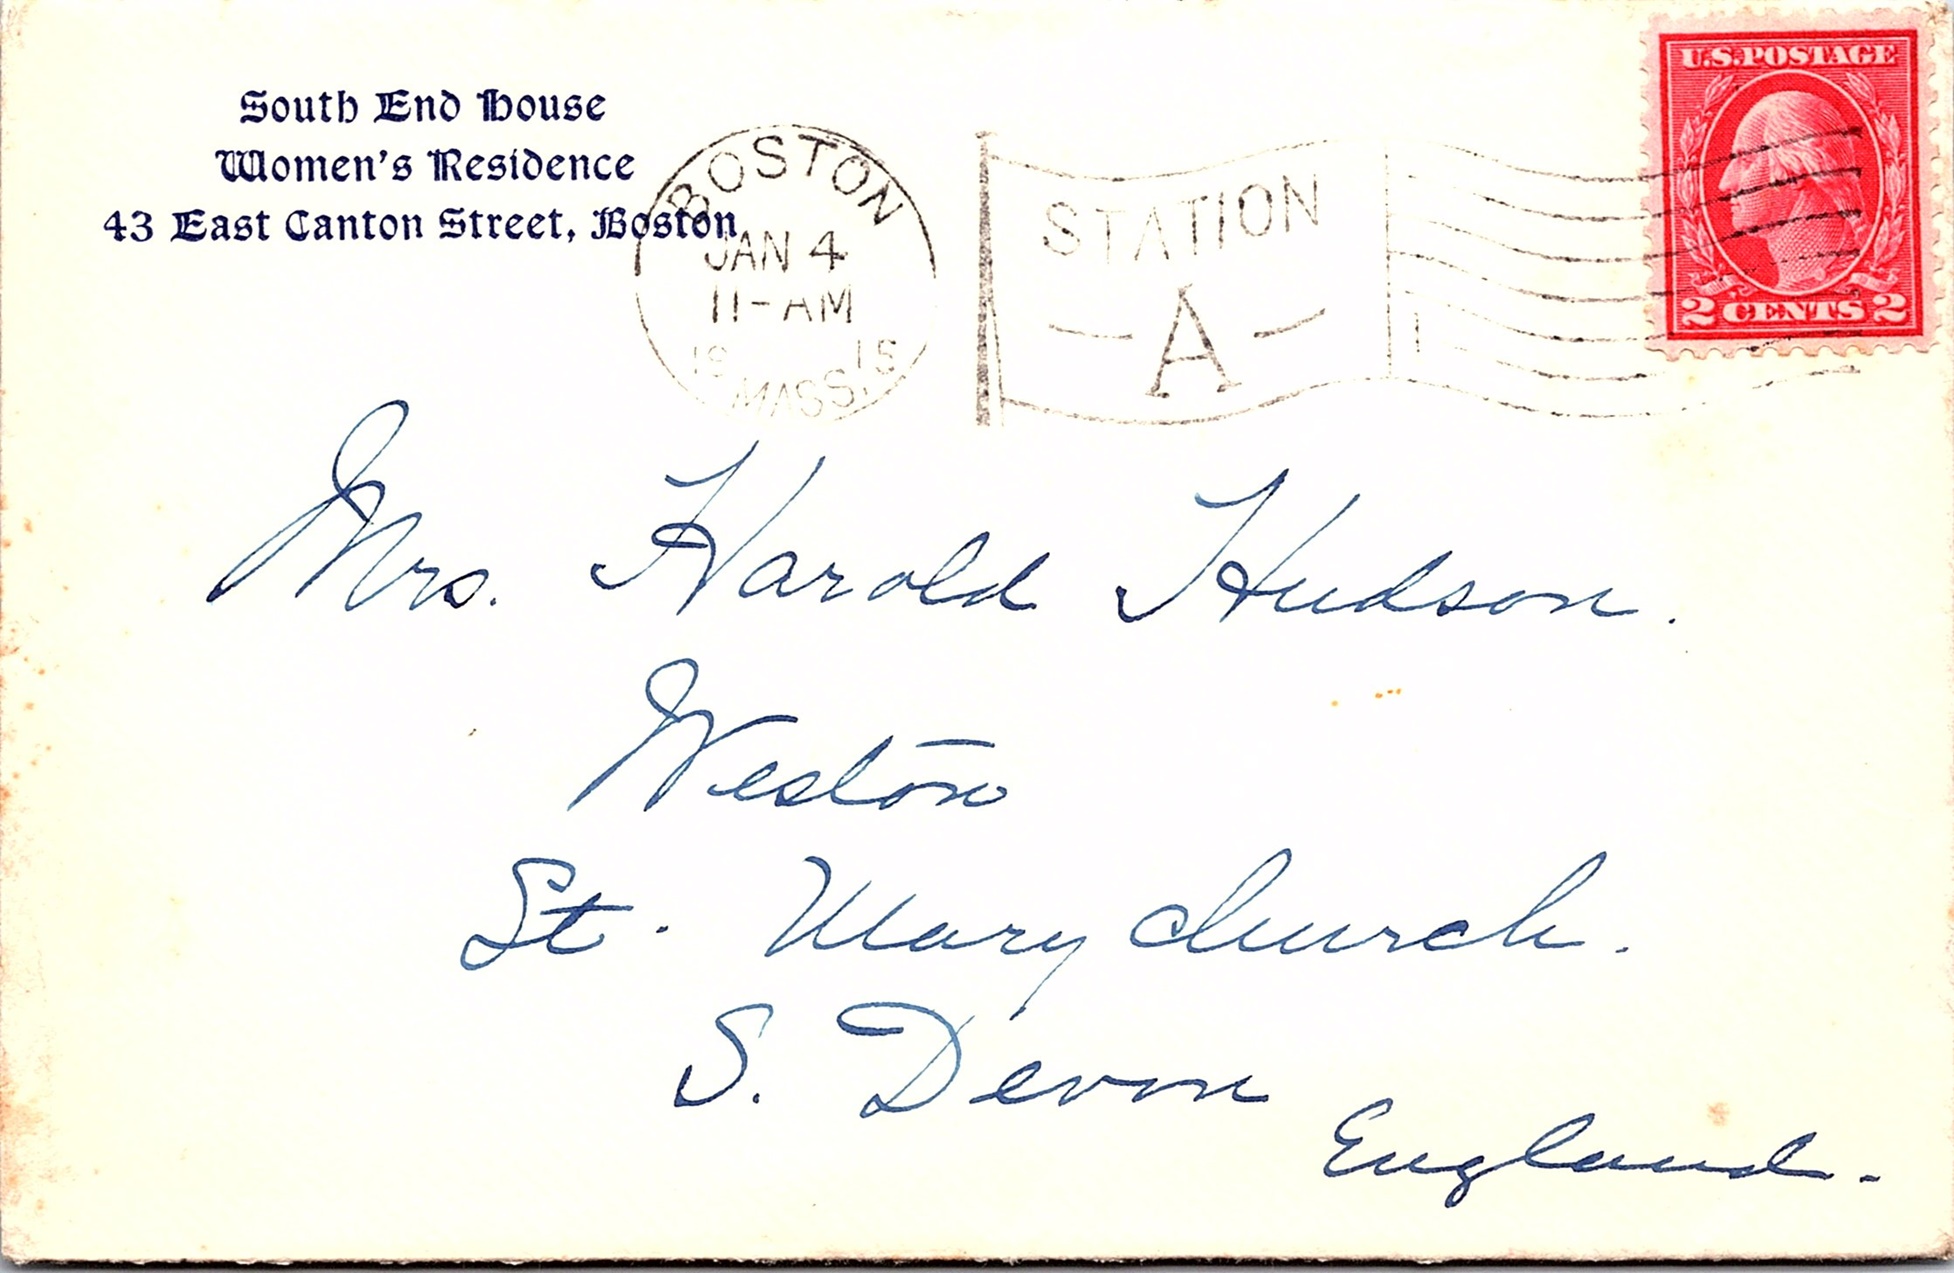 South End House
Women's Residence
43 East Canton Street, Boston
BOSTON
JAN 4
11-AM
19 15
MASS.
STATION
A
1
U.S. POSTAGE
2 CENTS 2
Mrs. Harold Hudson.
Weston
St. Mary church.
S. Devon
England.